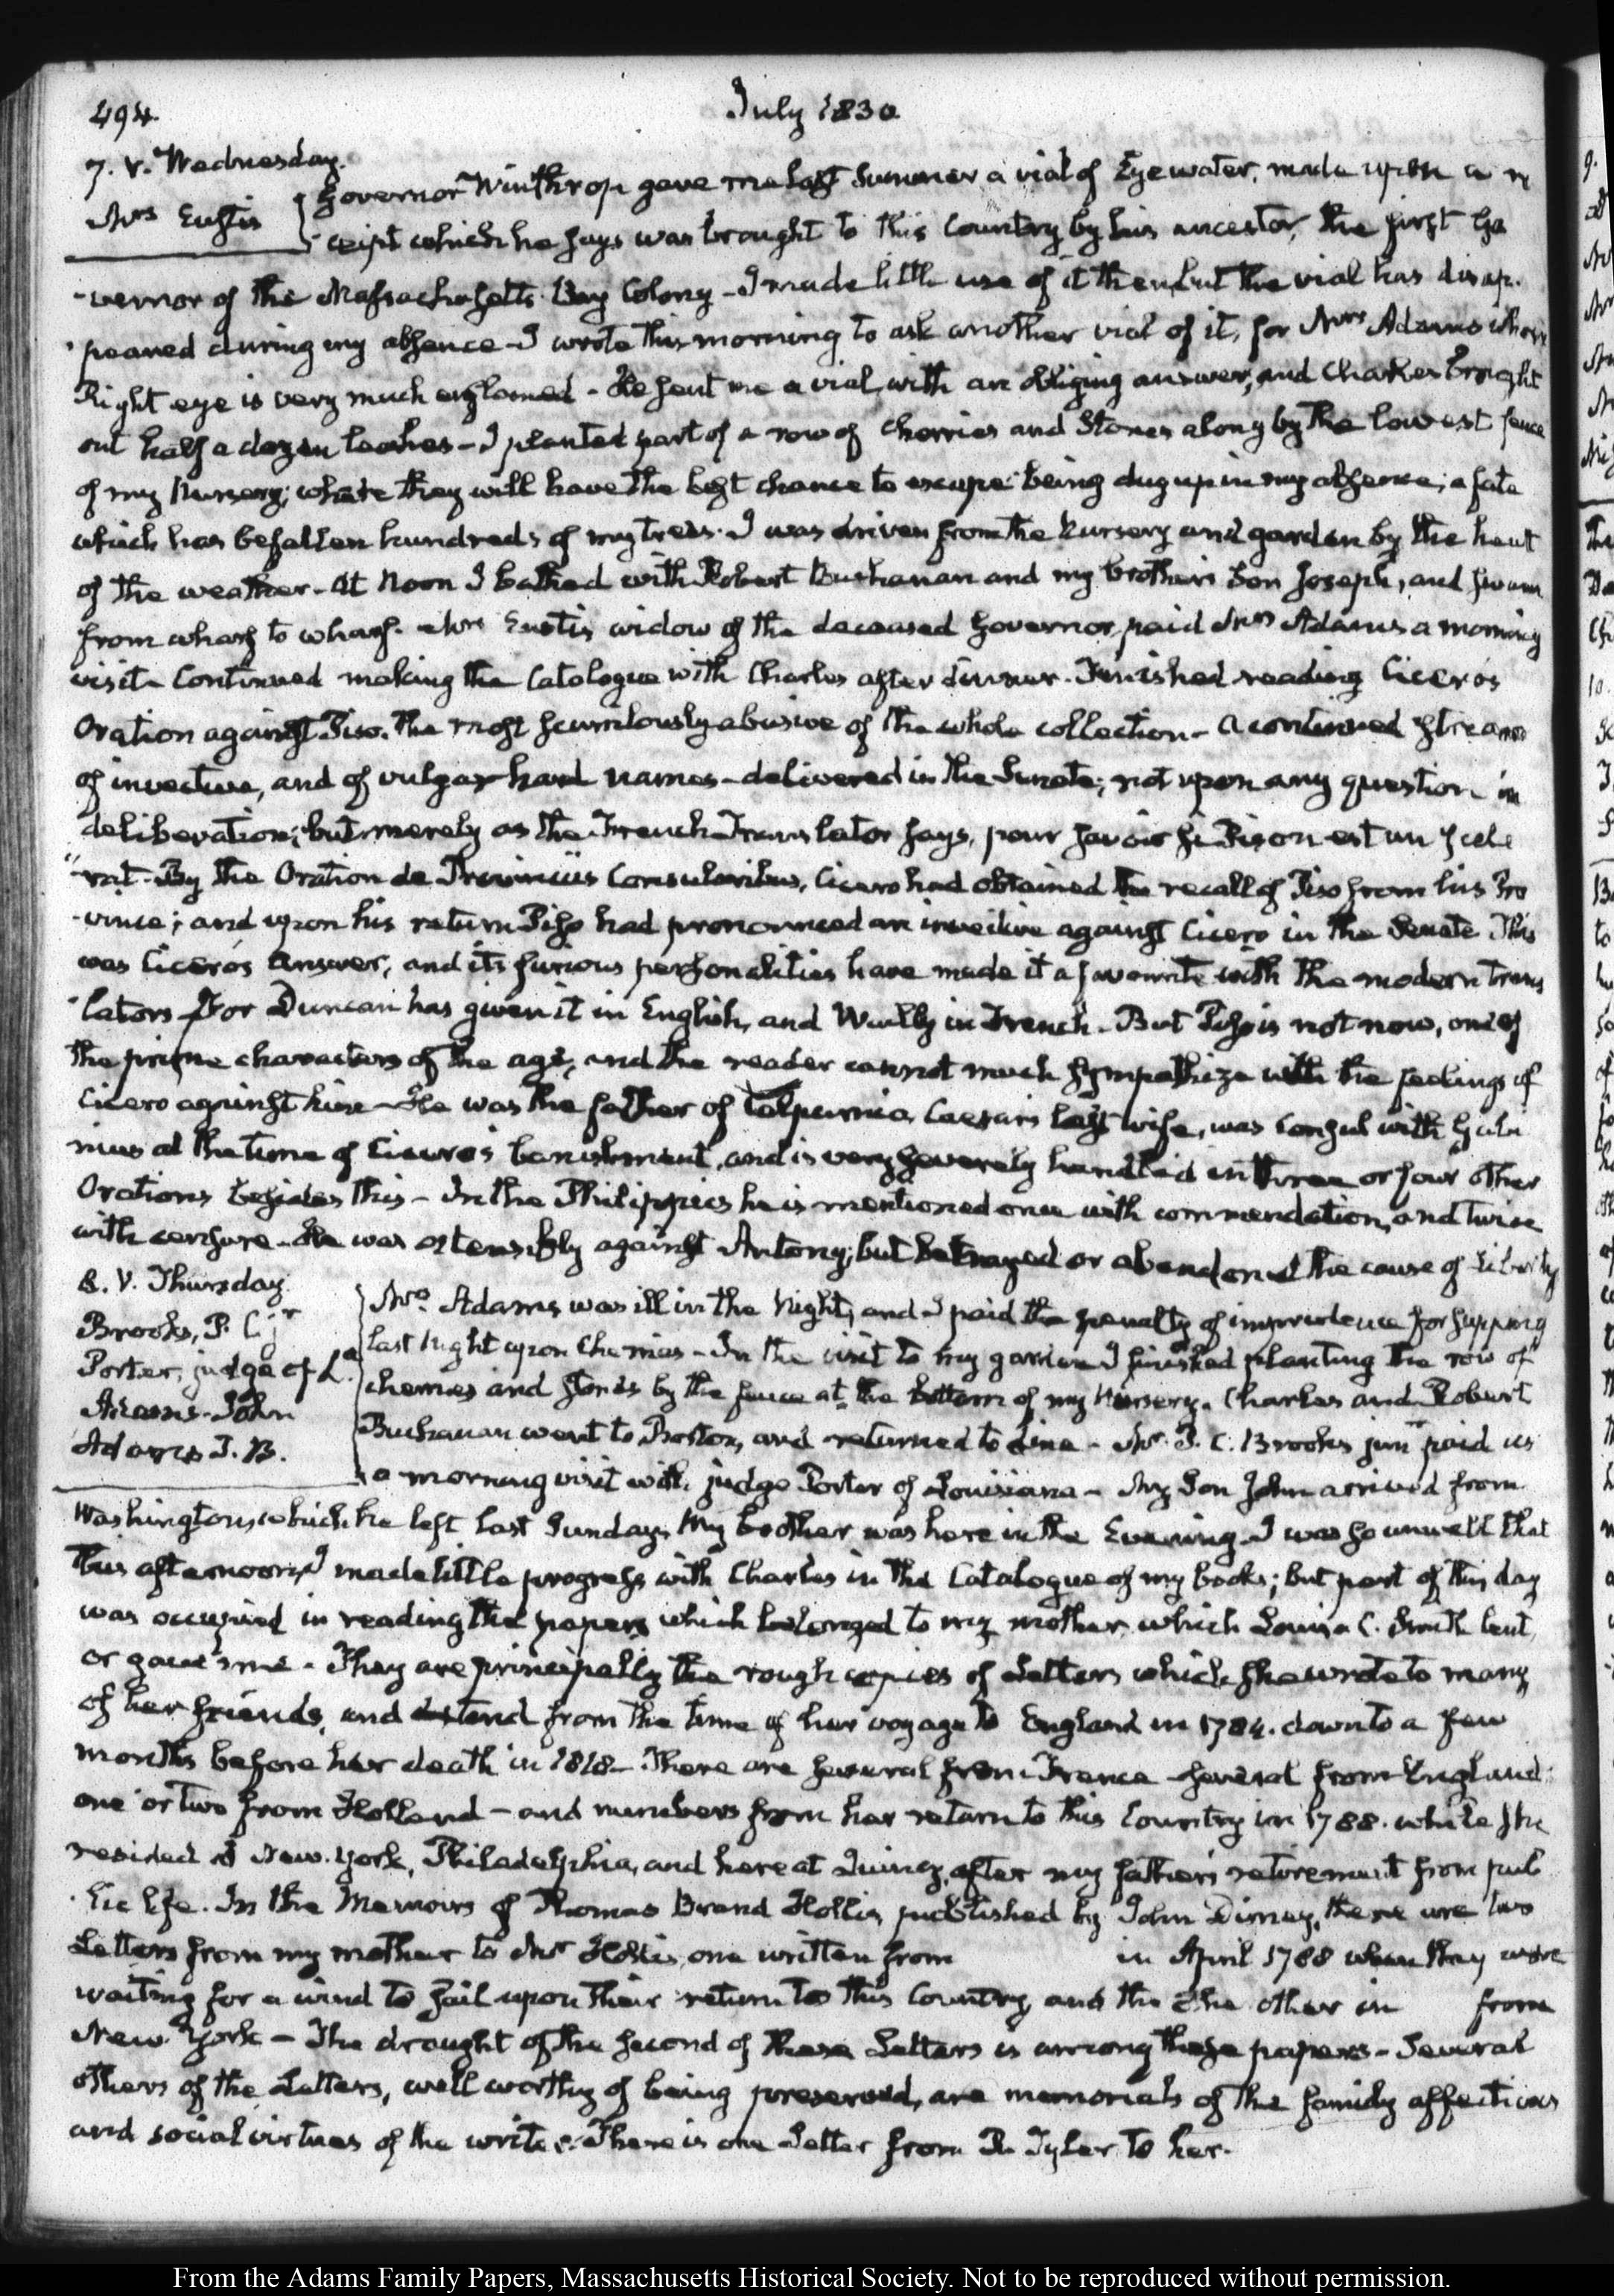 494.
July 1830
7. V. Wednesday.
Mrs Eustis
Governor Winthrop gave me last Summer a vial of Eyewater, made upon a re
-ceipt which he says was brought to this Country by his ancestor, the first Go
-vernor of the Massachusetts Bay Colony - I made little use of it then, but the vial has disap-
-peared during my absence - I wrote this morning to ask another vial of it, for Mrs Adams whose
Right eye is very much enflamed - He sent me a vial with an obliging answer, and Charles brought
out half a dozen leaches - I planted part of a row of Cherries and Stones along by the lowest fence
of my Nursery; where they will have the best chance to escape being dug up in my absence; a fate
which has befallen hundreds of my trees. I was driven from the Nursery and garden by the heat
of the weather - At Noon I bathed with Robert Buchanan and my brother's Son Joseph, and swam
from wharf to wharf. Mrs Eustis widow of the deceased Governor, paid Mrs Adams a morning
visit - Continued making the Catalogue with Charles after dinner. Finished reading Cicero's
Oration against Piso. The most scurrilously abusive of the whole collection - a continued stream
of invective, and of vulgar hard names - delivered in the Senate; not upon any question in
deliberation; but merely as the French Translator says, pour savoir si Pison est un scélé
"rat. By the Oration de Provinciis Consularibus, Cicero had obtained the recall of Piso from his Pro
-vince; and upon his return Piso had pronounced an invective against Cicero in the Senate This
was Cicero's Answer, and its furious personalities have made it a favourite with the modern trans
-lators - For Duncan has given it in English, and Wailly in French - But Piso is not now, one of
the prime characters of the age, and the reader cannot much sympathize with the feelings of
Cicero against him - He was the father of Calpurnia Caesar's last wife, was Consul with Gabi
nius at the time of Cicero's banishment, and is very severely handled in three or four other
Orations besides this - In the Philippics he is mentioned once with commendation, and twice
with censure - He was ostensibly against Antony; but betrayed or abandoned the cause of Liberty
8. V. Thursday.
Brooks, P. C. jr
Porter, judge of La
Adams - John
Adams T. B.
Mrs Adams was ill in the Night, and I paid the penalty of imprudence for supping
last Night upon Cherries - In the visit to my garden I finished planting the row of
cherries and stones by the fence at the bottom of my Nursery. Charles and Robert
Buchanan went to Boston, and returned to dine - Mr P. C. Brooks junr paid us
a morning visit with judge Porter of Louisiana - My Son John arrived from
Washington, which he left last Sunday. My brother was here in the Evening - I was so unwell that
this afternoon, I made little progress with Charles in the Catalogue of my books; but part of this day
was occupied in reading the papers which belonged to my mother, which Louisa C. Smith lent,
or gave me - They are principally the rough copies of Letters which she wrote to many
of her friends, and extend from the time of her voyage to England in 1784. down to a few
months before her death in 1818 - There are several from France - several from England;
one or two from Holland - and numbers from her return to this Country in 1788. while she
resided at New-York, Philadelphia, and here at Quincy, after my father's retirement from pub
-lic life. In the Memoirs of Thomas Brand Hollis, published by John Disney, there are two
Letters from my mother to Mr Hollis, one written from in April 1788 when they were
waiting for a wind to sail upon their return to this Country, and the the other in from
New York - The draught of the second of these Letters is among these papers - Several
others of the Letters, well worthy of being preserved, are memorials of the family affections
and social virtues of the writer. There is one Letter from R. Tyler to her.
From the Adams Family Papers, Massachusetts Historical Society. Not to be reproduced without permission.